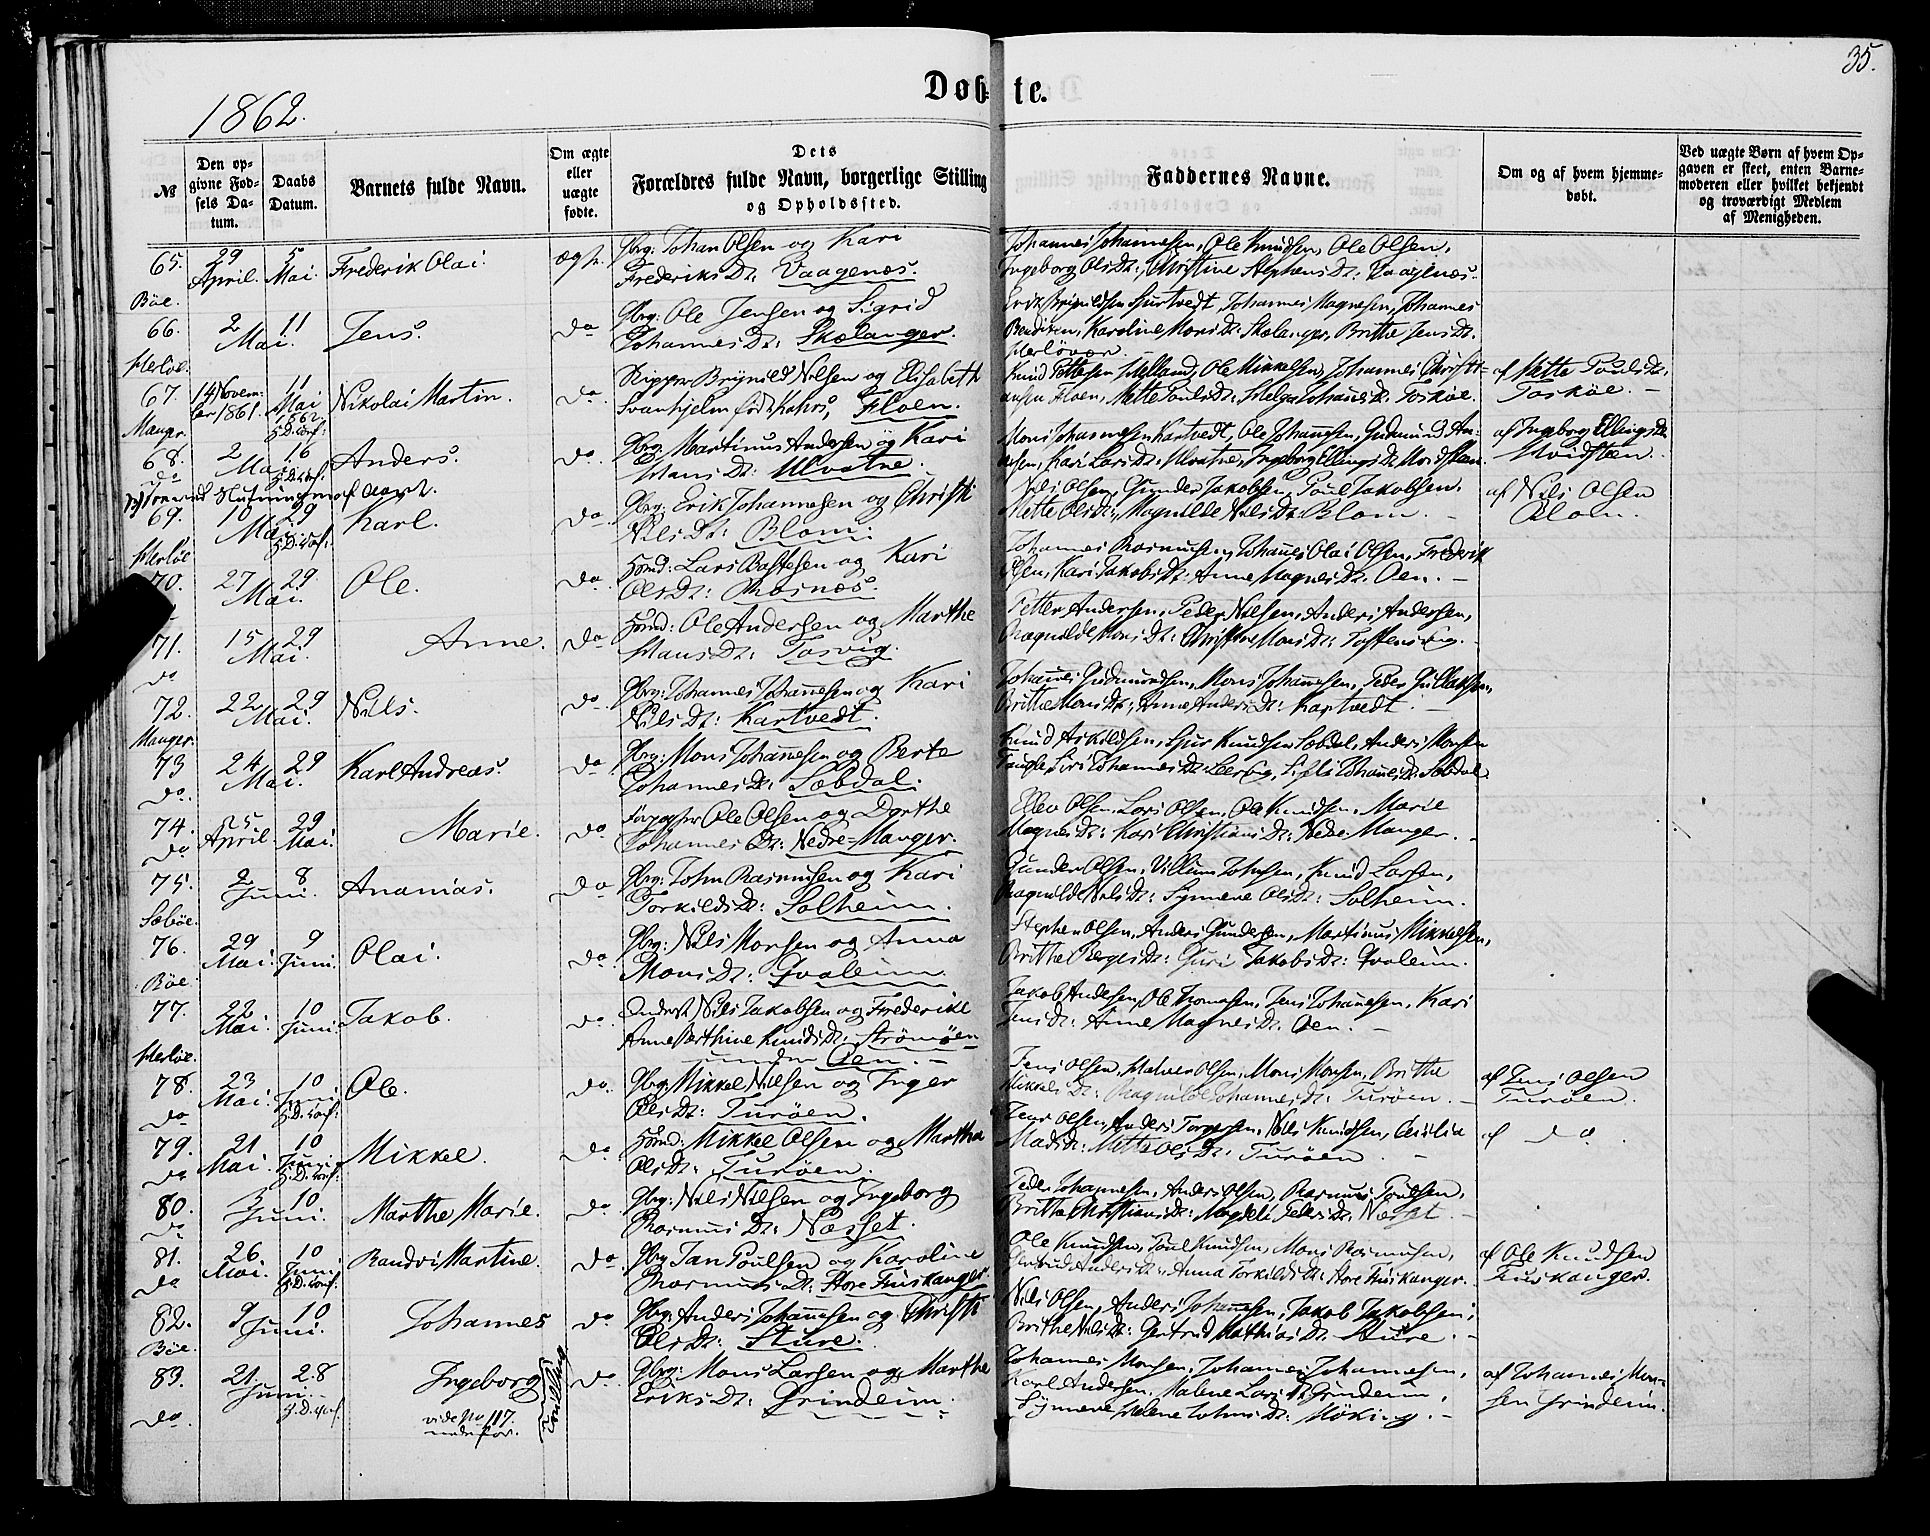 35.
Døbte.
1862.
No
Den opgivne Fødsels Datum.
Daabs Datum.
Barnets fulde Navn.
Om ægte eller uægte fødte.
Dets Forældres fulde Navn, borgerlige Stilling og Opholdssted.
Faddernes Navne.
Om og af hvem hjemmedøbt.
Ved uægte Børn af hvem Opgaven er skeet, enten Barnemoderen eller hvilket bekjendt og troværdigt Medlem af Menigheden.
65. 29 April. 5 Mai. Frederik Olai. ægte. Gbrg: Johan Olsen og Kari
Frederiksdt: Vaagenæs.
Johannes Johannesen, Ole Knudsen, Ole Olsen,
Ingeborg Olsdt:, Christine Stephensdt: Vaagenæs.
Bøe.
66. 2 Mai. 11 Jens. do Gbrg: Ole Jensen og Sigrid
Johannesdt: Skælanger.
Johannes Magnesen, Johannes
Karoline Monsdt: Skælanger, Brithe Jensdt:
Herløvær.
Herløe.
67. 14 November 1861. 11 Mai 1862. Nikolai Martin. do. Skipper Brynild Nilsen og Elisabeth
Floen.
Ole Mikkelsen, Johannes Christi-
ansen Floen, Mette Poulsdt: Helga Johannesdt: Toskøe.
af Mette Poulsdt:
Toskøe.
Manger
68. 2 Mai. 16 Anders. do. Gbrg. Martinus Andersen og Kari
Hansdt: Ulvatne.
Mons Johannesen Kartvedt, Ole Johannesen, Gudmund An-
dersen, Kari Larsdt: Ulvatne, Ingeborg Ellingsdt:
af Ingeborg Ellingsdt
do
69. 10 Mai. 29 Karl. do. Gbrg: Erik Johannesen og Christi
Nilsdt: Blom.
Nils Olsen, Gunder Jakobsen, Poul Jakobsen,
Mette Olsdt:, Magnilde Nilsdt: Blom.
af Nils Olsen
Blom.
Herløe
70. 27 Mai. 29 Ole. do. Hmd: Lars Bastesen og Kari
Olsdt: Rosnæs.
Johannes Rasmussen, Johannes Olai Olsen, Frederik
Olsen, Kari Jakobsdt: Anne Magnesdt: Oen.
71. 15 Mai. 29 Anne. do. Hmd: Ole Andersen og Marthe
Hansdt: Tosvig.
Petter Andersen, Peder Nilsen, Anders Andersen,
Ragnilde Monsdt: Christine Monsdt:
do
72. 22 Mai. 29 Nils. do Gbrg: Johannes Johannesen og Kari
Nilsdt: Kartvedt.
Johannes Gudmundsen, Mons Johannesen, Peder Gullaksen,
Brithe Monsdt:, Anne Andersdt: Kartvedt.
Manger.
73 24 Mai. 29 Karl Andreas. do Gbrg: Mons Johannesen og Berte
Johannesdt: Sæbdal.
Knud Askildsen, Sjur Knudsen Sæbdal, Anders Monsen
Siri Johannesdt: Sæbdal.
do.
74. 25 April 29 Mai. Marie. do Ole Olsen og Dorthe
Johannesdt: Nedre-Manger.
Ellev Olsen, Lars Olsen, Ole Knudsen, Marie
Magnesdt: Kari Christiansdt: Nedre-Manger.
do
75. 2 Juni. 8 Ananias. do Gbrg: John Rasmussen og Kari
Torkildsdt: Solheim.
Gunder Olsen, Villum Johnsen, Knud Larsen,
Ragnilde Nilsdt: Synneve Olsdt: Solheim.
Sæbøe.
76. 29 Mai. 9 Juni. Olai. do. Gbrg: Nils Monsen og Anna
Monsdt: Qvaleim.
Stephen Olsen, Anders Gundersen, Martinus Mikkelsen,
Brithe Bergesdt: Guri Jakobsdt: Qvaleim.
Bøe.
77. 22 Mai. 10 Juni. Jakob. do. Inderst Nils Jakobsen og Frederikke
Anne Berthine Knudsdt: Strømøen
under Oen.
Jakob Andersen, Ole Thomasen, Jens Johannesen, Kari
Jensdt: Anne Magnesdt: Oen.
Herløe.
78. 23 Mai. 10 Juni Ole. do. Gbrg: Mikkel Nilsen og Inger
Olsdt: Turøen.
Jens Olsen, Halvor Olsen, Mons Monsen, Brithe
Mikkelsdt: Ragnilde Johannesdt: Turøen.
af Jens Olsen
Turøen.
do
79. 21 Mai. 10 Juni Mikkel. do Hmd: Mikkel Olsen og Martha
Olsdt: Turøen.
Jens Olsen, Anders Torgersen, Nils Knudsen, Cicilia
Madsdt: Mette Olsdt: Turøen.
af do.
do
80. 3 Juni. 10 Marthe Marie. do Gbrg: Nils Nilsen og Ingeborg
Rasmusdt: Næsset.
Peder Johannesen, Anders Olsen, Rasmus Poulsen,
Brithe Christiansdt: Magdeli Pedersdt: Næsset.
do
81. 26 Mai. 10 Juni Randvi Martine. do Gbrg Jan Poulsen og Karoline
Rasmusdt: Store Fuskanger.
Ole Knudsen, Poul Knudsen, Mons Rasmussen,
Gertrud Andersdt: Anna Torkildsdt: Store Fuskanger.
af Ole Knudsen
Fuskanger.
do
82. 9 Juni. 10 Johannes do. Gbrg: Anders Johannesen og Christi
Olsdt: Sture.
Nils Olsen, Anders Johannesen, Jakob Jakobsen,
Brithe Nilsdt: Gertrud Mathiasdt: Sture.
Bøe.
83. 21 Juni. 28 Ingeborg Tvilling do. Gbrg: Mons Larsen og Marthe
Eriksdt: Grindeim.
Johannes Monsen, Johannes Johannesen,
Karl Andersen, Malene Larsdt: Grindeim,
Synneve Helene Johnsdt: Möking.
af Johannes Mon-
sen Grindeim.
do.
vide No 117.
nedenfor.